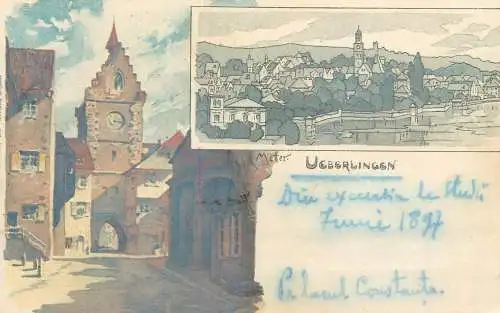 Meter.
UEBERLINGEN
Din excursia de studii
Iunie 1897
Pe lacul Constanța.